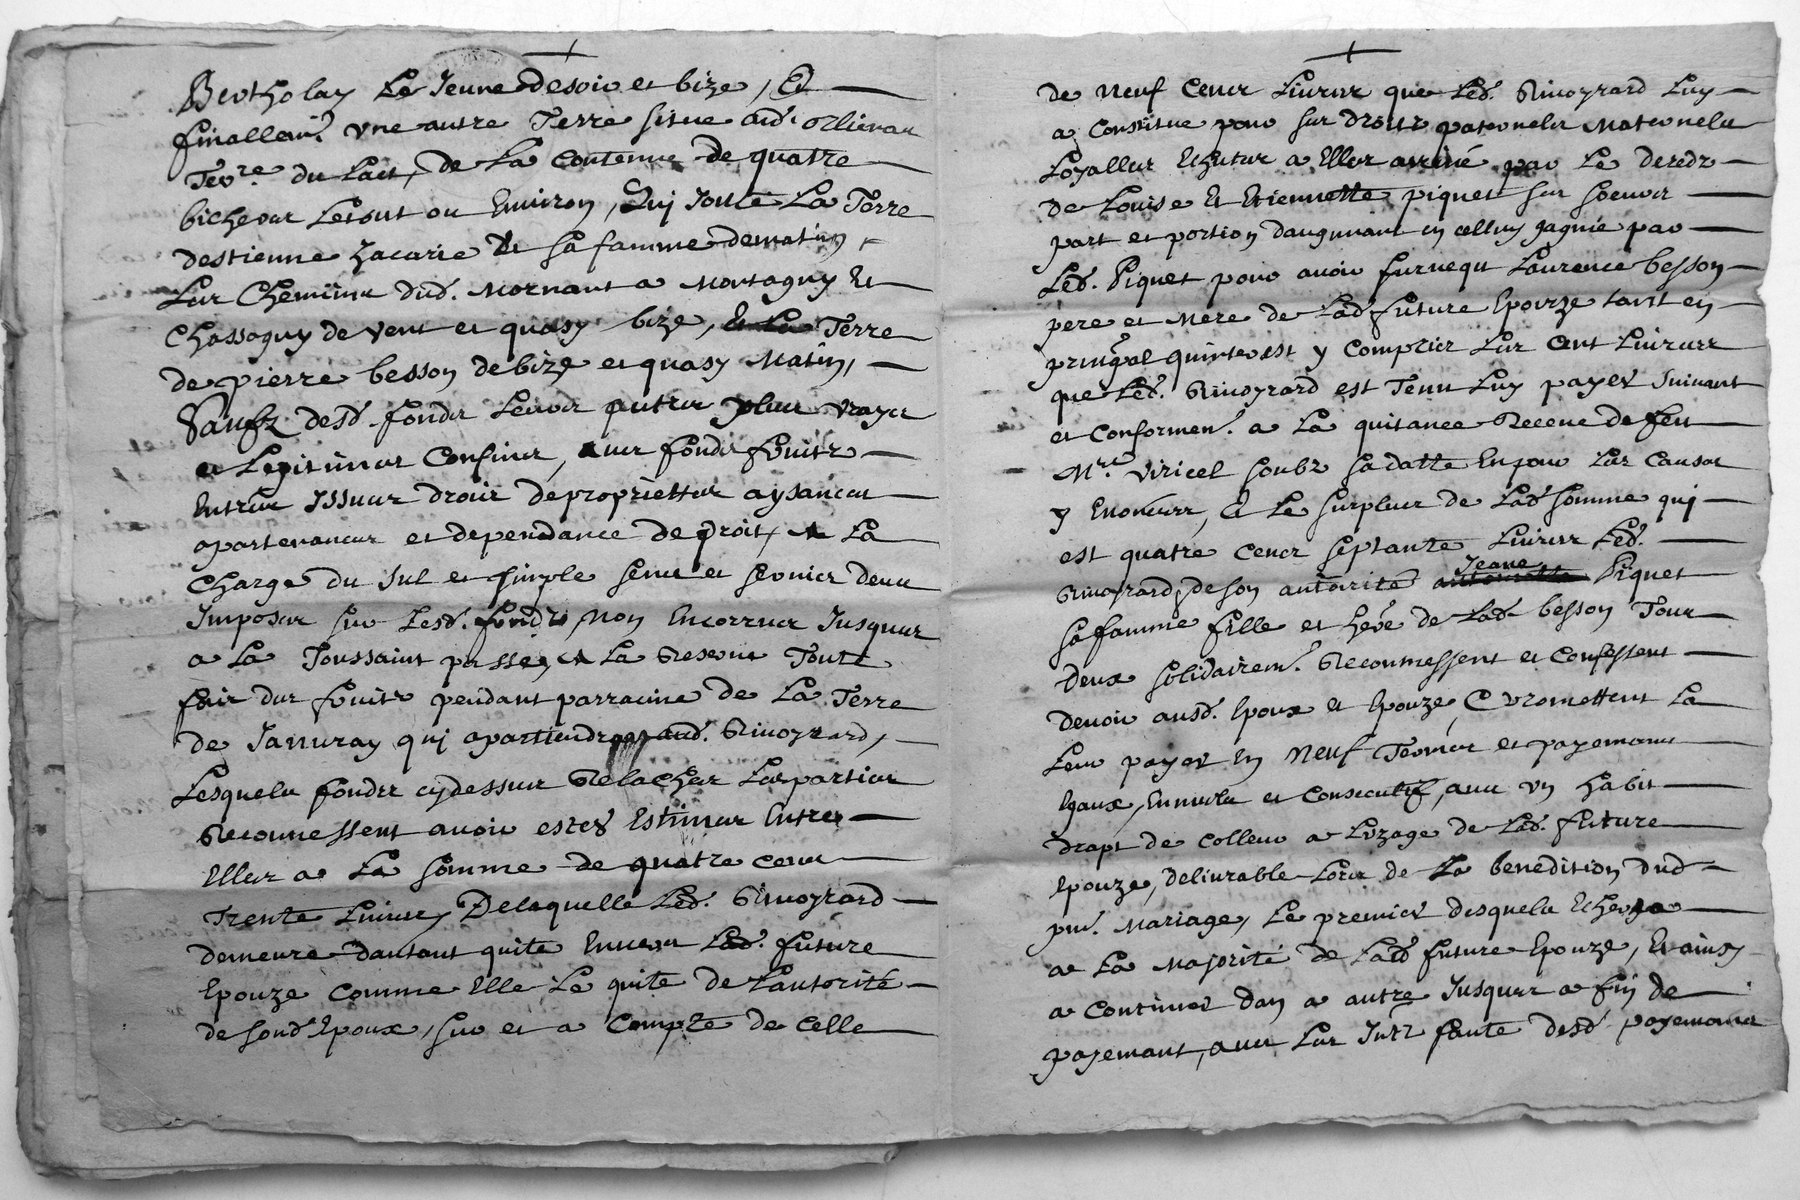 Bertholay Le Jeune desoir et bize, Et
finallem.t une autre Terre situe aud. orlienas
Terr.re du Lait, de La Contenue de quatre
bichees Lesdt ou Environ, Qui Joute La Terre
destienne Zacarie Et sa famme dematin,
Les Chemins dud. Mornant a Montagny Et
Chassagny de vent et quasy bize, Et La Terre
de pierre besson de bize et quasy Matin,
Saufz desd. fonds Leurs autres plus vrayes
et Legitimes Confins, avec fonds fruitz
Entrées Issues droits de proprietter aysances
apartenances et dependance de droit, et a La
Charge du Sul et simple sens et servis deux
Imposes sur Lesd. fonds, Non Encorrus Jusques
a La Toussaint passee, et La Reserve Toute
fois des fruitz pendant parracine de La Terre
de Janvray qui apartiendront aud. Rivoyrard,
Lesquels fonds cydessus Relaches Les parties
Reconnessent avoir estes Estimes Entre
Elles a La somme de quatre cens
Trente Livres, De laquelle Led. Rivoyrard
demeure dautant quite Envers Lad. future
Epouze comme Elle Le quite de Lautorité
de sond. Epoux, sur et a Compte de Celle
de Neuf Cens Livres que Led. Rivoyrard Luy
a Constitue pour ses droitz paternels Maternels
Loyalles Echutes a Elles arrivé par Le deredz
de Louise Et Etiennette piquet ses soeurs
part et portion daugmant en celluy gagnie par
Led. Piquet pour avoir survequ Laurence besson
pere et Mere de Lad. future Epouze tant en
principal quinterest y Compries Les Cent Livres
que Led. Rivoyrard est Tenu Luy payer Suivant
et Conformen.t a La quitance Receue de feu
M.re Viricel soubz sa datte Enpour Les Causes
y Enoncées, Et Le surplus de Lad. somme qui
est quatre Cens septante Livres Led.
Rivoyrard, de son autorité Jeane Piquet
sa famme fille et here de Lad. besson Tous
deux solidairem.t Reconnessent et Confessent
devoir ausd. Epoux et Epouze, Et promettent La
Leur payer En Neuf Termes et payemans
Egaux, Annuels et Consecutifs, avec un habit
drapt de Colleur a Luzage de Lad. future
Epouze, delivrable Lors de La benedition dud.
pnt. Mariage, Le premier desquels Echerra
a La Majorité de Lad. future Epouze, Et ainsy
a Continuer dan a autre Jusques a fin de
payemant, avec Les Intz faute desd. payemans